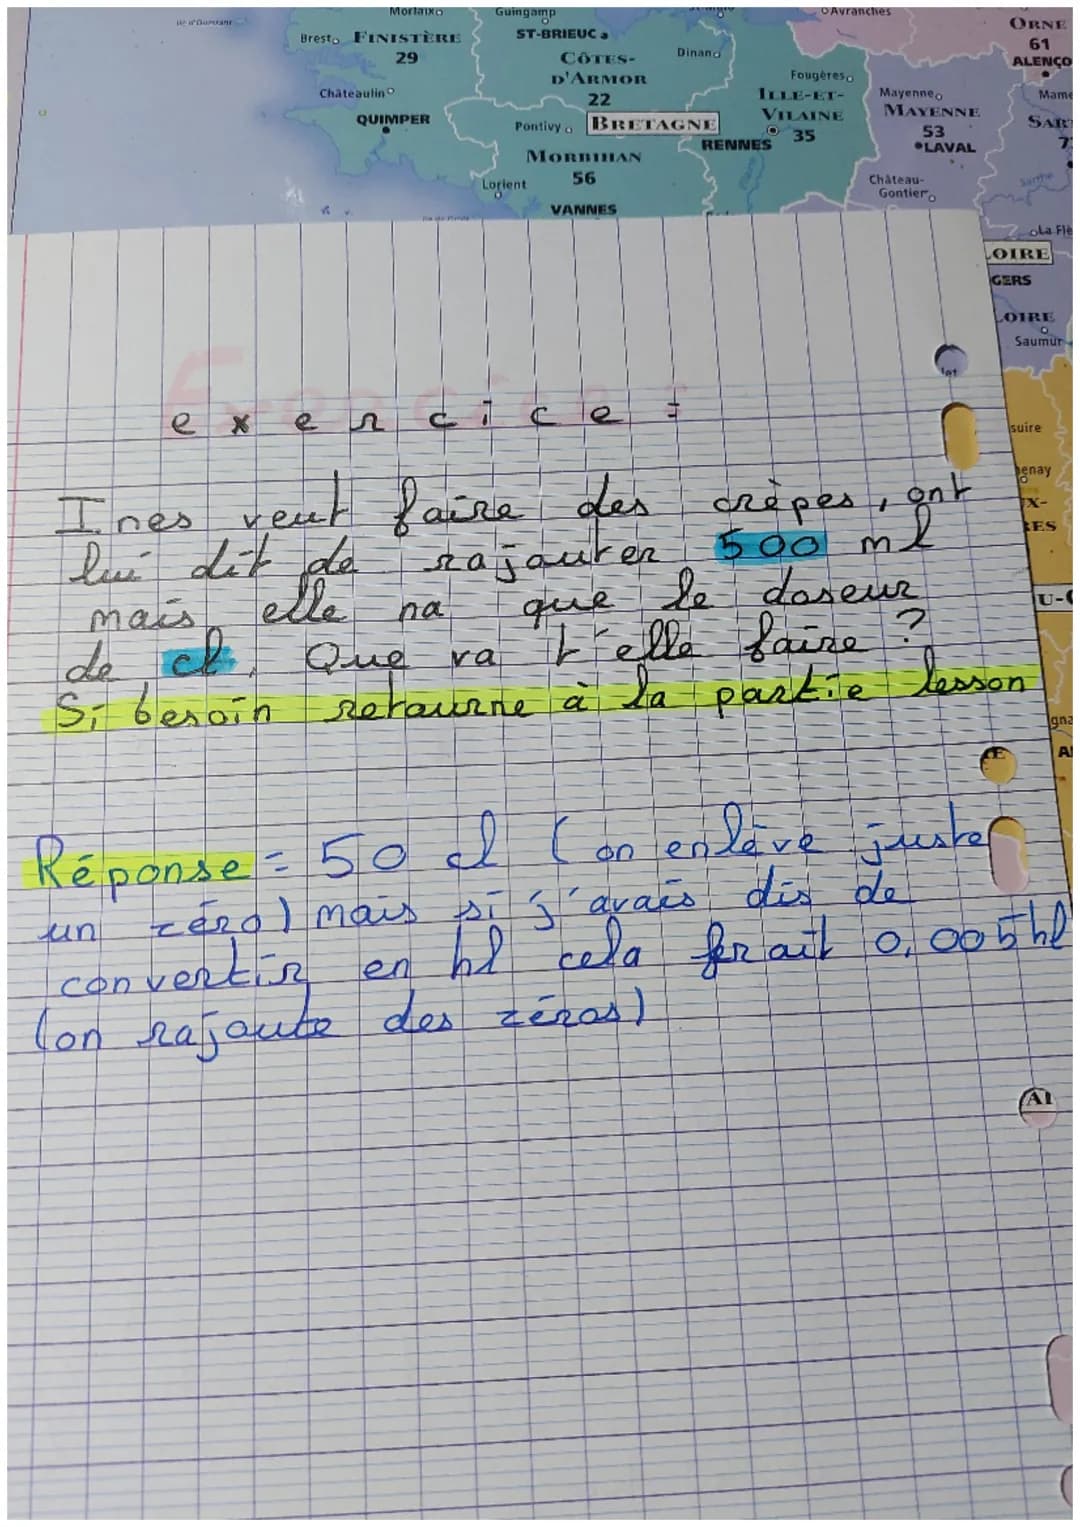 Morlaix
Guingamp
Avranches
Brest
FINISTÈRE
29
ST-BRIEUC
CÔTES-
D'ARMOR
22
Dinan
ORNE
61
ALENÇO
Châteaulin
QUIMPER
Pontivy
BRETAGNE
Fougères
ILLE-ET-
VILAINE
35
RENNES
Mayenne
MAYENNE
53
LAVAL
Mame
SAR
7
MORBIHAN
56
Lorient
VANNES
Château-
Gontier
Sarthe
La Flè
LOIRE
GERS
LOIRE
Saumur
let
suire
enay
X-
ES
U-
gna
A
Exercice :
exercice :
Ines veut faire des crêpes, ont
lui dit de rajouter 500 ml
mais elle na que le doseur
de cl. Que va t'elle faire ?
Si besoin retourne à la partie lesson
Réponse = 50 cl (on enlève juste
un zéro) mais si j'avais dis de
convertir en hl cela ferait 0,005hl
(on rajoute des zéros)
AI